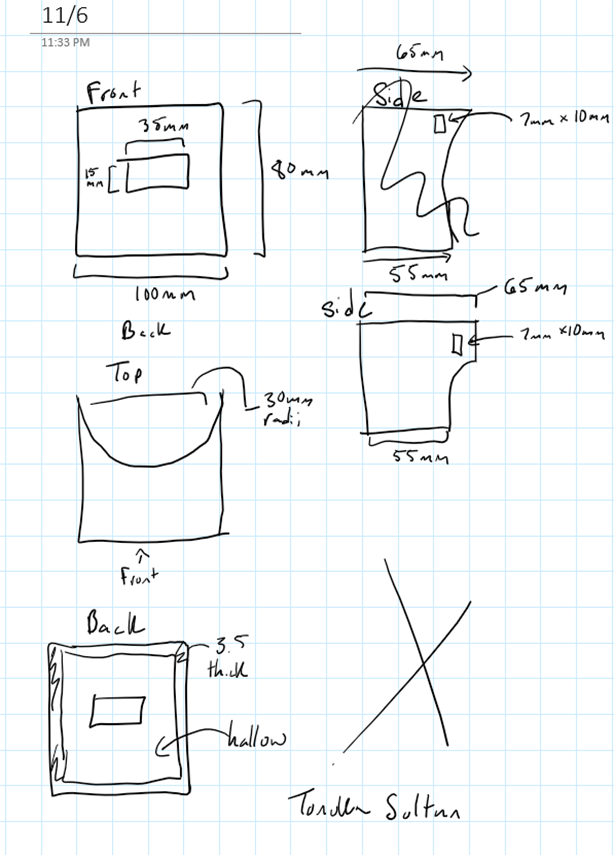 11/6
11:33 PM
Front
35mm
15
mm
80mm
100mm
65mm
Side
7mm x 10mm
55mm
Side
65mm
7mm x 10mm
55mm
Back
Top
30mm
radii
Front
Back
3.5
thick
hallow